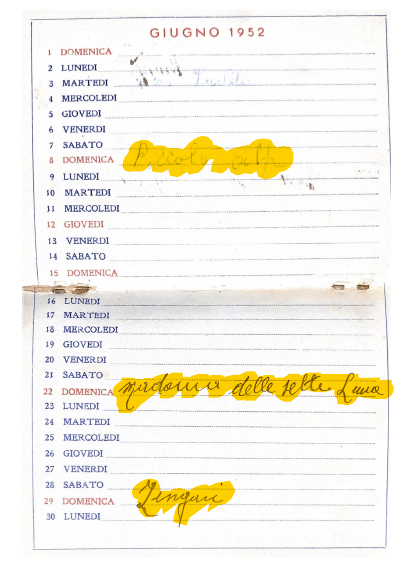 GIUGNO 1952
1 DOMENICA
2 LUNEDI
3 MARTEDI
4 MERCOLEDI
5 GIOVEDI
6 VENERDI
7 SABATO
8 DOMENICA
9 LUNEDI
10 MARTEDI
11 MERCOLEDI
12 GIOVEDI
13 VENERDI
14 SABATO
15 DOMENICA
16 LUNEDI
17 MARTEDI
18 MERCOLEDI
19 GIOVEDI
20 VENERDI
21 SABATO
22 DOMENICA Madonna delle sette Luna
23 LUNEDI
24 MARTEDI
25 MERCOLEDI
26 GIOVEDI
27 VENERDI
28 SABATO
29 DOMENICA Zingari
30 LUNEDI